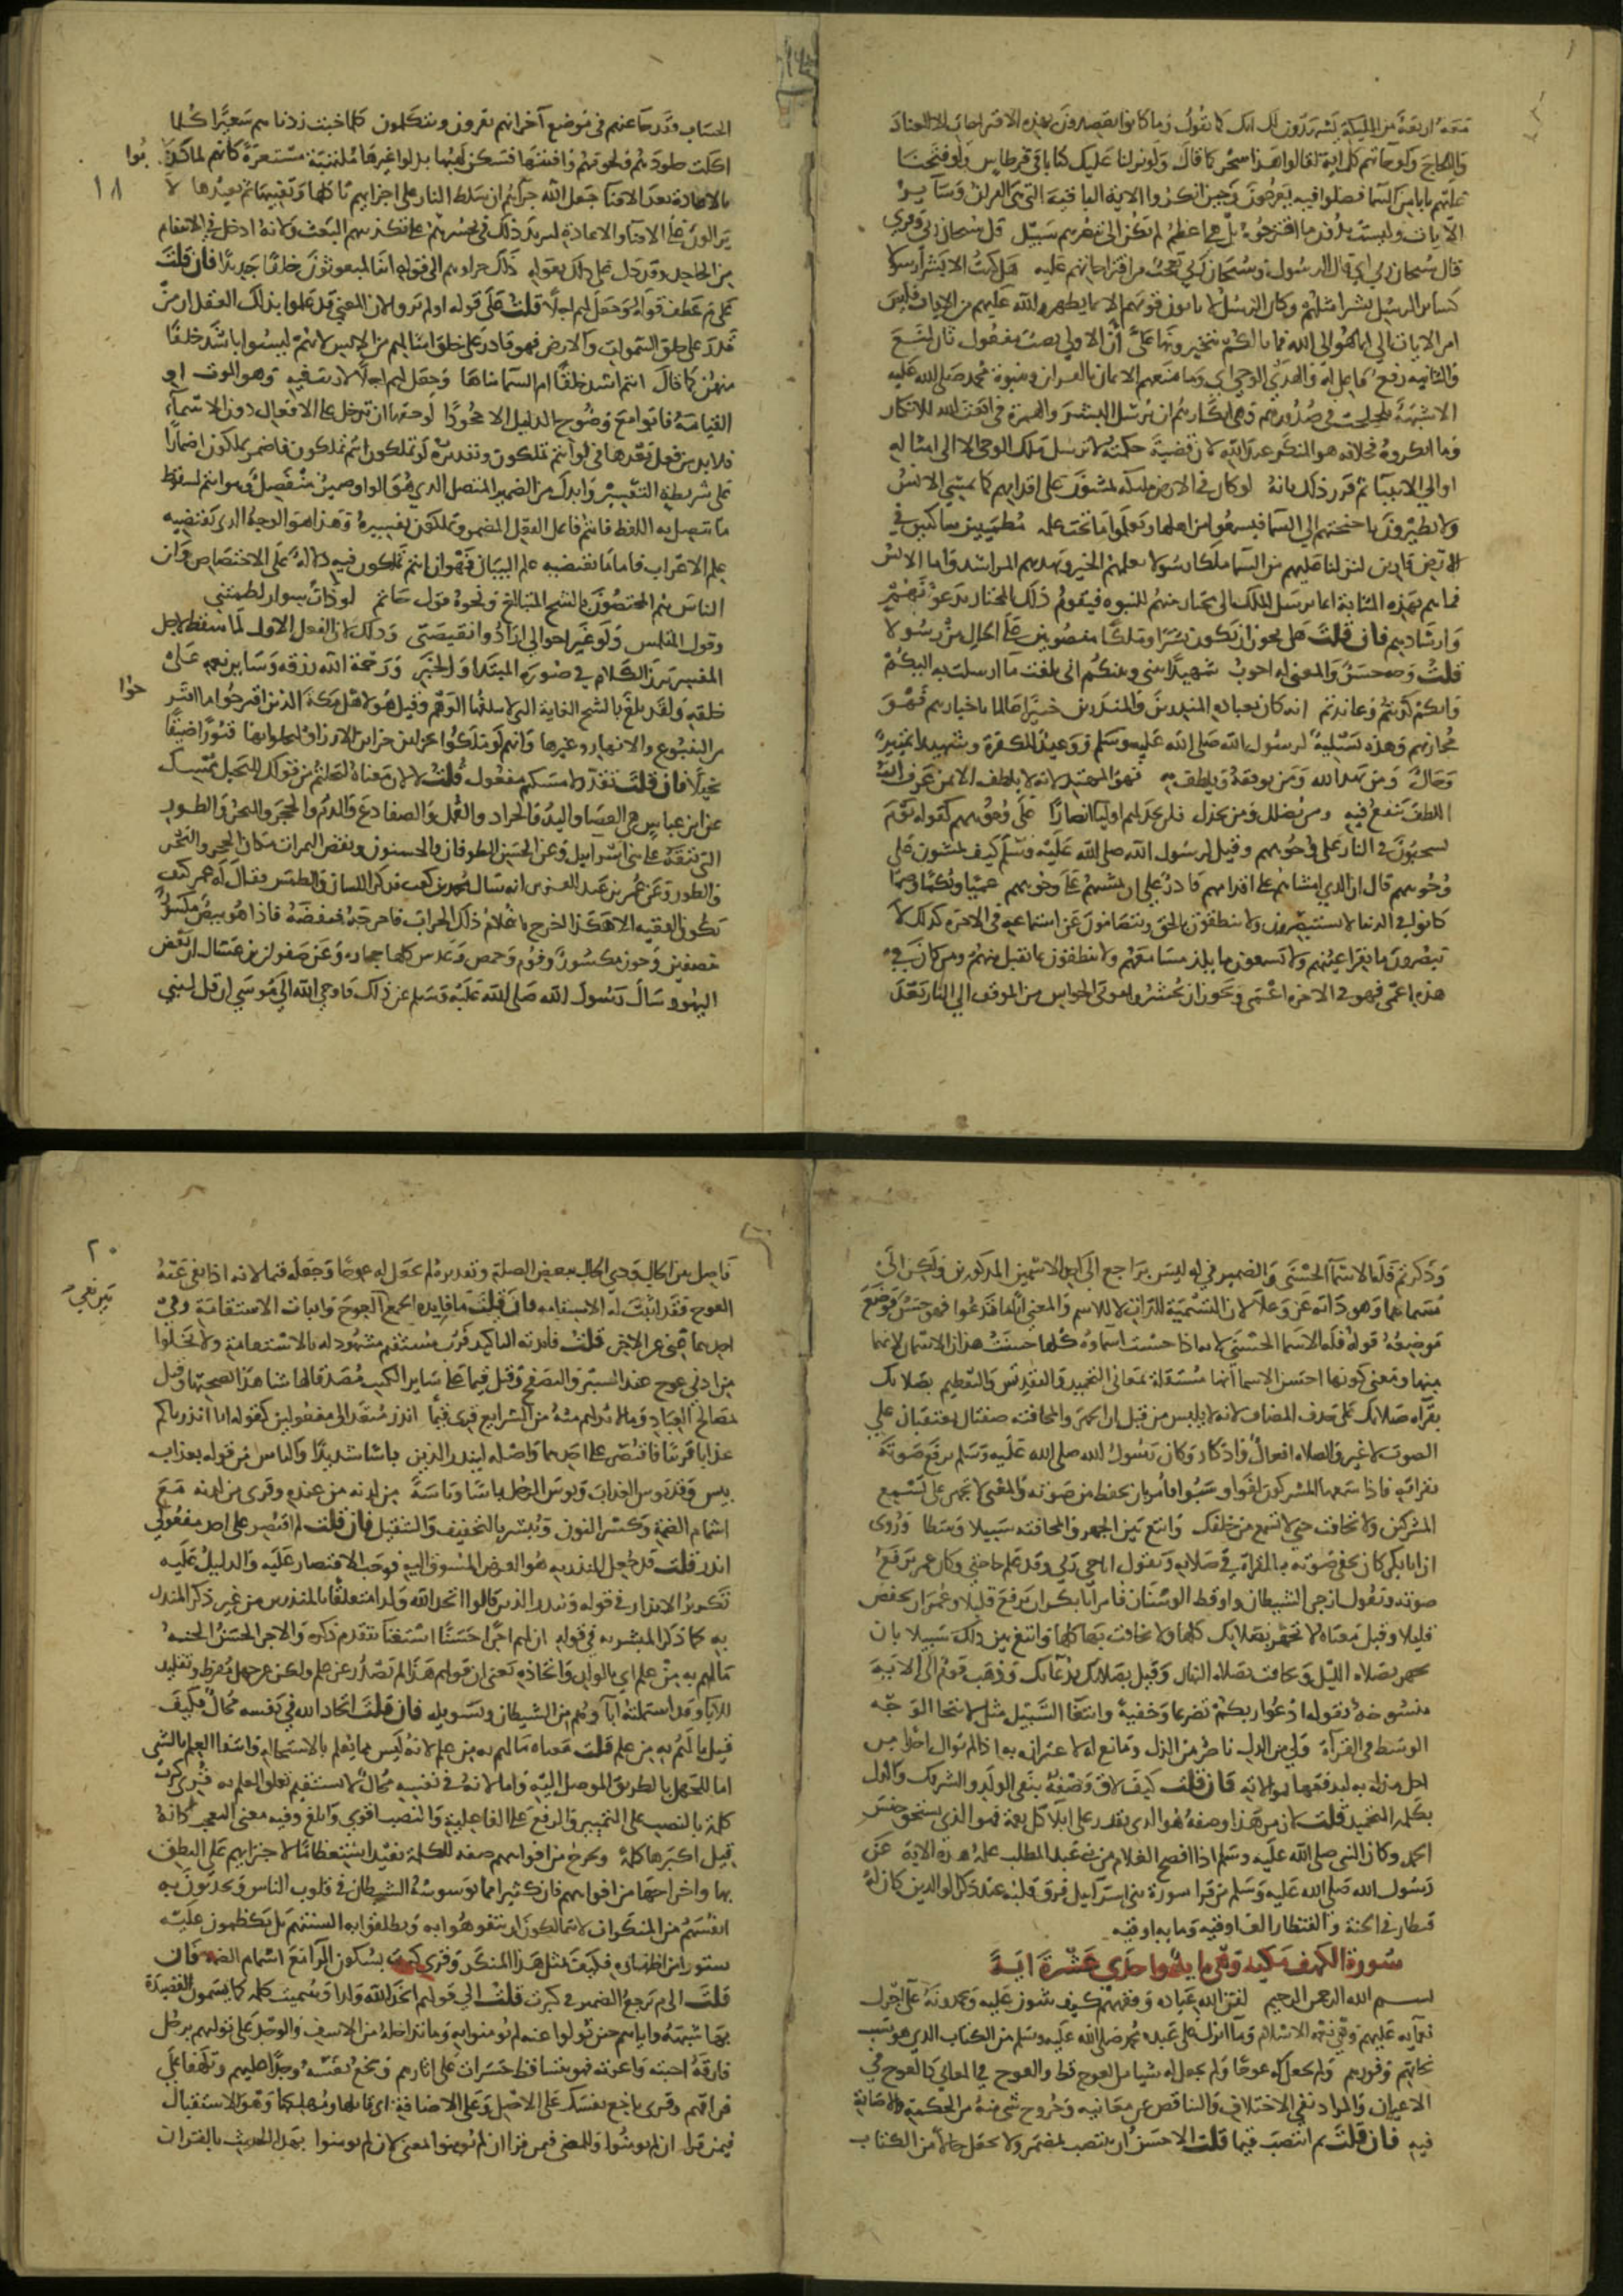 معه اربعة من الملائكة يشهدون لك انك كما تقول وما كانوا يقصدون بهذه الاقتراحات الا العناد
واللجاج ولو جاتهم كل اية لقالوا هذا سحر كما قال ولو نزلنا عليك كتابا في قرطاس ولو فتحنا
عليهم بابا من السما فظلوا فيه يعرجون وحين انكروا الاية الباقية التي هي القران وساير
الايات وليست بدون ما اقترحوه بل هي اعظم لم يكن الى تبصرهم سبيل قل سبحان ربي وقرئ
قال سبحان ربي اي قال الرسول وسبحان ربي تعجب من اقتراحاتهم عليه هل كنت الا بشرا رسولا
كساير الرسل بشرا مثلهم وكان الرسل لا ياتون قومهم الا بما يظهره الله عليهم من الايات فليس
امر الايات الي انما هو الى الله فما بالكم تتخيرونها علي أن الاولى نصب مفعول ثان لمنع
والثانية رفع فاعل له والهدى الوحي اي وما منعهم الايمان بالقران وبنبوة محمد صلى الله عليه
الا شبهة تلجلجت في صدورهم وهي انكارهم ان يرسل البشر والهمزة في ابعث الله للانكار
وما انكروه فخلافه هو المنكر عند الله لان قضية حكمته لا يرسل ملك الوحي الا الى امثاله
او الى الانبيا ثم قرر ذلك بانه لو كان في الارض ملائكة يمشون على اقدامهم كما يمشي الانس
ولا يطيرون باجنحتهم الى السما فيسمعوا من اهلها ويعلموا ما تحت علمه مطمئنين ساكنين في
الارض قارين لنزلنا عليهم من السما ملكا رسولا يعلمهم الخير ويهديهم المراشد واما الانس
فما هم بهذه المثابة انما يرسل الملك الى مختار منهم للنبوة فيقوم ذلك المختار بدعوتهم
وارشادهم فان قلت هل يجوز ان يكون بشرا وملكا منصوبين على الحال من رسولا
قلت وجه حسن والمعنى له اجوب شهيدا بيني وبينكم اني بلغت ما ارسلت به اليكم
وانكم كذبتم وعاندتم انه كان بعباده المنذرين والمنذرين خبيرا عالما باخبارهم فهو
مجازيهم وهذه تسلية لرسول الله صلى الله عليه وسلم ووعيد للكفرة وشهيدا تمييز
وحال ومن يهد الله ومن يوفقه ويلطف به فهو المهتد لانه لا يلطف الا بمن عرف ان
اللطف ينفع فيه ومن يضلل ومن يخذل فلن تجد لهم اوليا انصارا على وجوههم كقوله يوم
يسحبون في النار على وجوههم وقيل لرسول الله صلى الله عليه وسلم كيف يمشون على
وجوههم قال ان الذي امشاهم على اقدامهم قادر على ان يمشيهم على وجوههم عميا وبكما وصما
كانوا في الدنيا لا يستبصرون ولا ينطقون بالحق ويتصامون عن استماعه فهم في الاخرة كذلك لا
يبصرون ما يقر اعينهم ولا يسمعون ما يلذ مسامعهم ولا ينطقون بما يقبل منهم ومن كان في
هذه اعمى فهو في الاخرة اعمى ويجوز ان يحشروا موفى الحواس من الموقف الى النار بعد
الحساب وقد جا عنهم في موضع آخر انهم يقرون ويتكلمون كلما خبت زدناهم سعيرا كلما
اكلت جلودهم ولحومهم وافنتها فسكن لهبها بدلوا غيرها ملتهبة مستعرة كانهم لما كذبوا
بالاعادة بعد الافنا جعل الله جزاهم ان سلط النار على اجزايهم تاكلها وتفنيها ثم يعيدها لا
١٨
يزالون على الافنا والاعادة ليزيد ذلك في تحسرهم على تكذيبهم البعث ولانه ادخل في الانتقام
من الجاحد وقد دل على ذلك بقوله ذلك جزاوهم الى قوله ائنا لمبعوثون خلقا جديدا فان قلت
على م عطف قوله وجعل لهم اجلا قلت على قوله اولم يروا لان المعنى قد علموا بدليل العقل ان من
قدر على خلق السموات والارض فهو قادر على خلق امثالهم من الانس لانهم ليسوا باشد خلقا
منهن كما قال اانتم اشد خلقا ام السما بناها وجعل لهم اجلا لا ريب فيه وهو الموت او
القيامة فابوا مع وضوح الدليل الا جحودا لو حقها ان تدخل على الافعال دون الاسماء
فلا بد من فعل بعدها في لو انتم تملكون وتقديره لو تملكون انتم تملكون فاضمر تملكون اضمارا
على شريطة التفسير وابدل من الضمير المتصل الذي هو الواو ضمير منفصل وهو انتم لسقوط
ما يتصل به اللفظ فانتم فاعل الفعل المضمر وتملكون تفسيره وهذا هو الوجه الذي يقتضيه
علم الاعراب فاما ما يقتضيه علم البيان فهو ان انتم تملكون فيه دلالة على الاختصاص وان
الناس هم المختصون بالشح المتبالغ ونحوه قول حاتم لو ذات سوار لطمتني
وقول المتلمس ولو غير اخوالي ارادوا نقيصتي وذلك لان الفعل الاول لما سقط لاجل
المفسر برز الكلام في صورة المبتدا والخبر ورحمة الله رزقه وساير نعمه على
خلقه ولقد بلغ بالشح الغاية التي لا يبلغها الوهم وقيل هو لاهل مكة الذين اقترحوا ما اقترحوا
من الينبوع والانهار وغيرها وانهم لو ملكوا خزاين الارزاق لبخلوا بها قتورا ضيقا
بخيلا فان قلت هل يقدر لامسكتم مفعول قلت لا لان معناه لبخلتم من قولك للبخيل ممسك
عن ابن عباس هي العصا واليد والجراد والقمل والضفادع والدم والحجر والبحر والطور
الذي نتقه على بني اسرائيل وعن الحسن الطوفان والسنون ونقص الثمرات مكان الحجر والبحر
والطور وعن عمر بن عبد العزيز انه سال محمد بن كعب فذكر اللسان والطمس فقال له عمر كيف
يكون الفقيه الا هكذا اخرج يا غلام ذلك الجراب فاخرجه فنفضه فاذا هو بيض مكسور
نصفين وجوز مكسور وفوم وحمص وعدس كلها حجارة وعن صفوان بن عسال ان بعض
اليهود سال رسول الله صلى الله عليه وسلم عن ذلك فاوحى الله الى موسى ان قل لبني
وذكرتم فله الاسما الحسنى والضمير في له ليس براجع الى احد الاسمين المذكورين ولكن الى
مسماهما وهو ذاته عز وعلا لان التسمية للذات لا للاسم والمعنى ايا ما تدعوا فهو حسن فوضع
موضعه قوله فله الاسما الحسنى لانه اذا حسنت اسماوه كلها حسنت هذان الاسمان لانهما
منها ومعنى كونها احسن الاسما انها مستقلة بمعاني التحميد والتقديس والتعظيم بصلاتك
بقراة صلاتك على حذف المضاف لانه لا يلبس من قبل ان الجهر والمخافتة صفتان يعتقبان على
الصوت لا غير والصلاة افعال واذكار وكان رسول الله صلى الله عليه وسلم يرفع صوته
بقراته فاذا سمعها المشركون لغوا وسبوا فامر بان يخفض من صوته والمعنى لا تجهر حتى تسمع
المشركين ولا تخافت حتى لا تسمع من خلفك وابتغ بين الجهر والمخافتة سبيلا وسطا وروى
ان ابا بكر كان يخفي صوته بالقراة في صلاته ويقول اناجي ربي وقد علم حاجتي وكان عمر يرفع
صوته ويقول ازجر الشيطان واوقظ الوسنان فامر ابا بكر ان يرفع قليلا وعمر ان يخفض
قليلا وقيل معناه لا تجهر بصلاتك كلها ولا تخافت بها كلها وابتغ بين ذلك سبيلا بان
تجهر بصلاة الليل وتخافت بصلاة النهار وقيل بصلاتك بدعائك وذهب قوم الى ان الاية
منسوخة بقوله ادعوا ربكم تضرعا وخفية وابتغا السبيل مثل لانتحا الوجه
الوسط في القراة ولي من الذل ناصر من الذل ومانع له لاعتزازه به او لم يوال احدا من
اجل مذلة به ليدفعها بموالاته فان قلت كيف لاق وصفه بنفي الولد والشريك والذل
بكلمة التحميد قلت لان من هذا وصفه هو الذي يقدر على ايلا كل نعمة فهو الذي يستحق جنس
الحمد وكان النبي صلى الله عليه وسلم اذا افصح الغلام من بني عبد المطلب علمه هذه الاية عن
رسول الله صلى الله عليه وسلم من قرا سورة بني اسرائيل فرق قلبه عند ذكر الوالدين كان له
قنطار في الجنة والقنطار الف اوقية وما به اوقيه
سورة الكهف مكية وهي ماية واحدى عشرة اية
بسم الله الرحمن الرحيم لقن الله عباده وفقههم كيف يثنون عليه ويحمدونه على اجزل
نعمائه عليهم وهي نعمة الاسلام وما انزل على عبده محمد صلى الله عليه وسلم من الكتاب الذي هو سبب
نجاتهم وفوزهم ولم يجعل له عوجا ولم يجعل له شيا من العوج قط والعوج في المعاني كالعوج في
الاعيان والمراد نفي الاختلاف والتناقض عن معانيه وخروج شي منه من الحكمة والاصابة
فيه فان قلت بم انتصب قيما قلت الاحسن ان ينتصب بمضمر ولا يجعل حالا من الكتاب
٢٠
فاصل بين الحال وذي الحال ببعض الصلة وتقديره ولم يجعل له عوجا وجعله قيما لانه اذا نفى عنه
العوج فقد اثبت له الاستقامة فان قلت ما فايدة الجمع بين نفي العوج واثبات الاستقامة وفي
احدهما غنى عن الاخر قلت فايدته التاكيد فرب مستقيم مشهود له بالاستقامة ولا يخلوا
من ادنى عوج عند السبر والتصفح وقيل قيما على ساير الكتب مصدقا لها شاهدا بصحتها وقيل
بمصالح العباد وما لا بد لهم منه من الشرايع قرئ قيما انذر متعد الى مفعولين كقوله انا انذرناكم
عذابا قريبا فاقتصر على احدهما واصله لينذر الذين باسا شديدا والباس من قوله بعذاب
بيس وقد بوس العذاب وبوس الرجل باسا وباسة من لدنه من عنده وقرئ من لدنه مع
اشمام الضمة وكسر النون ويبشر بالتخفيف والتثقيل فان قلت لم اقتصر على احد مفعولي
انذر قلت قد جعل المنذر به هو الغرض المسوق اليه فوجب الاقتصار عليه والدليل عليه
تكرير الانذار في قوله وينذر الذين قالوا اتخذ الله ولدا متعلقا بالمنذرين من غير ذكر المنذر
به كما ذكر المبشر به في قوله ان لهم اجرا حسنا استغنا بتقدم ذكره والاجر الحسن الجنة
ما لهم به من علم اي بالولد او باتخاذه يعني ان قولهم هذا لم يصدر عن علم ولكن عن جهل مفرط وتقليد
للابا وقد استملته اباوهم من الشيطان وتسويله فان قلت اتخاذ الله في نفسه محال فكيف
قيل ما لهم به من علم قلت معناه ما لهم به من علم لانه ليس مما يعلم لاستحالته وانتفا العلم بالشي
اما للجهل بالطريق الموصل اليه واما لانه في نفسه محال لا يستقيم تعلق العلم به قرئ كبرت
كلمة بالنصب على التمييز والرفع على الفاعلية والنصب اقوى وابلغ وفيه معنى التعجب كانه
قيل ما اكبرها كلمة وتخرج من افواههم صفة للكلمة تفيد استعظاما لاجترايهم على النطق
بها واخراجها من افواههم فان كثيرا مما يوسوسه الشيطان في قلوب الناس ويحدثون به
انفسهم من المنكرات لا يتمالكون ان يتفوهوا به ويطلقوا به السنتهم بل يكظمون عليه
ستورا من اظهاره فكيف بمثل هذا المنكر وقرئ كبرت بسكون البا مع اشمام الضمة فان
قلت الى م يرجع الضمير في كبرت قلت الى قولهم اتخذ الله ولدا وسميت كلمة كما يسمون القصيدة
بها شبهه واياهم حين تولوا عنه لم يومنوا به وما تداخله من الاسف والوجد على توليهم برجل
فارقه احبته واعزته فهو يتساقط حسرات على اثارهم ويبخع نفسه وجدا عليهم وتلهفا على
فراقهم وقرئ باخع نفسك على الاصل وعلى الاضافة اي قاتلها ومهلكها وهو للاستقبال
فيمن قرا ان لم يومنوا وللمضي فيمن قرا ان لم يومنوا بمعنى لان لم يومنوا بهذا الحديث بالقران